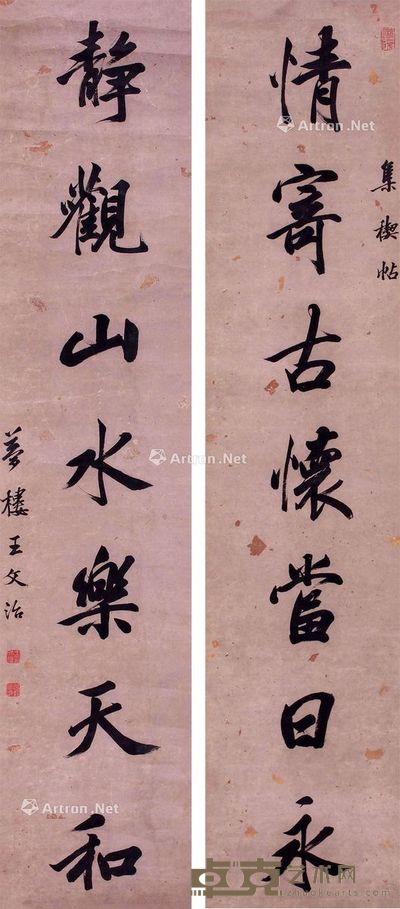 集禊帖
情寄古懷當日永
靜觀山水樂天和
夢樓王文治
Artron.Net
Artron.Net
Artron.Net
Artron.Net
卓克艺术网